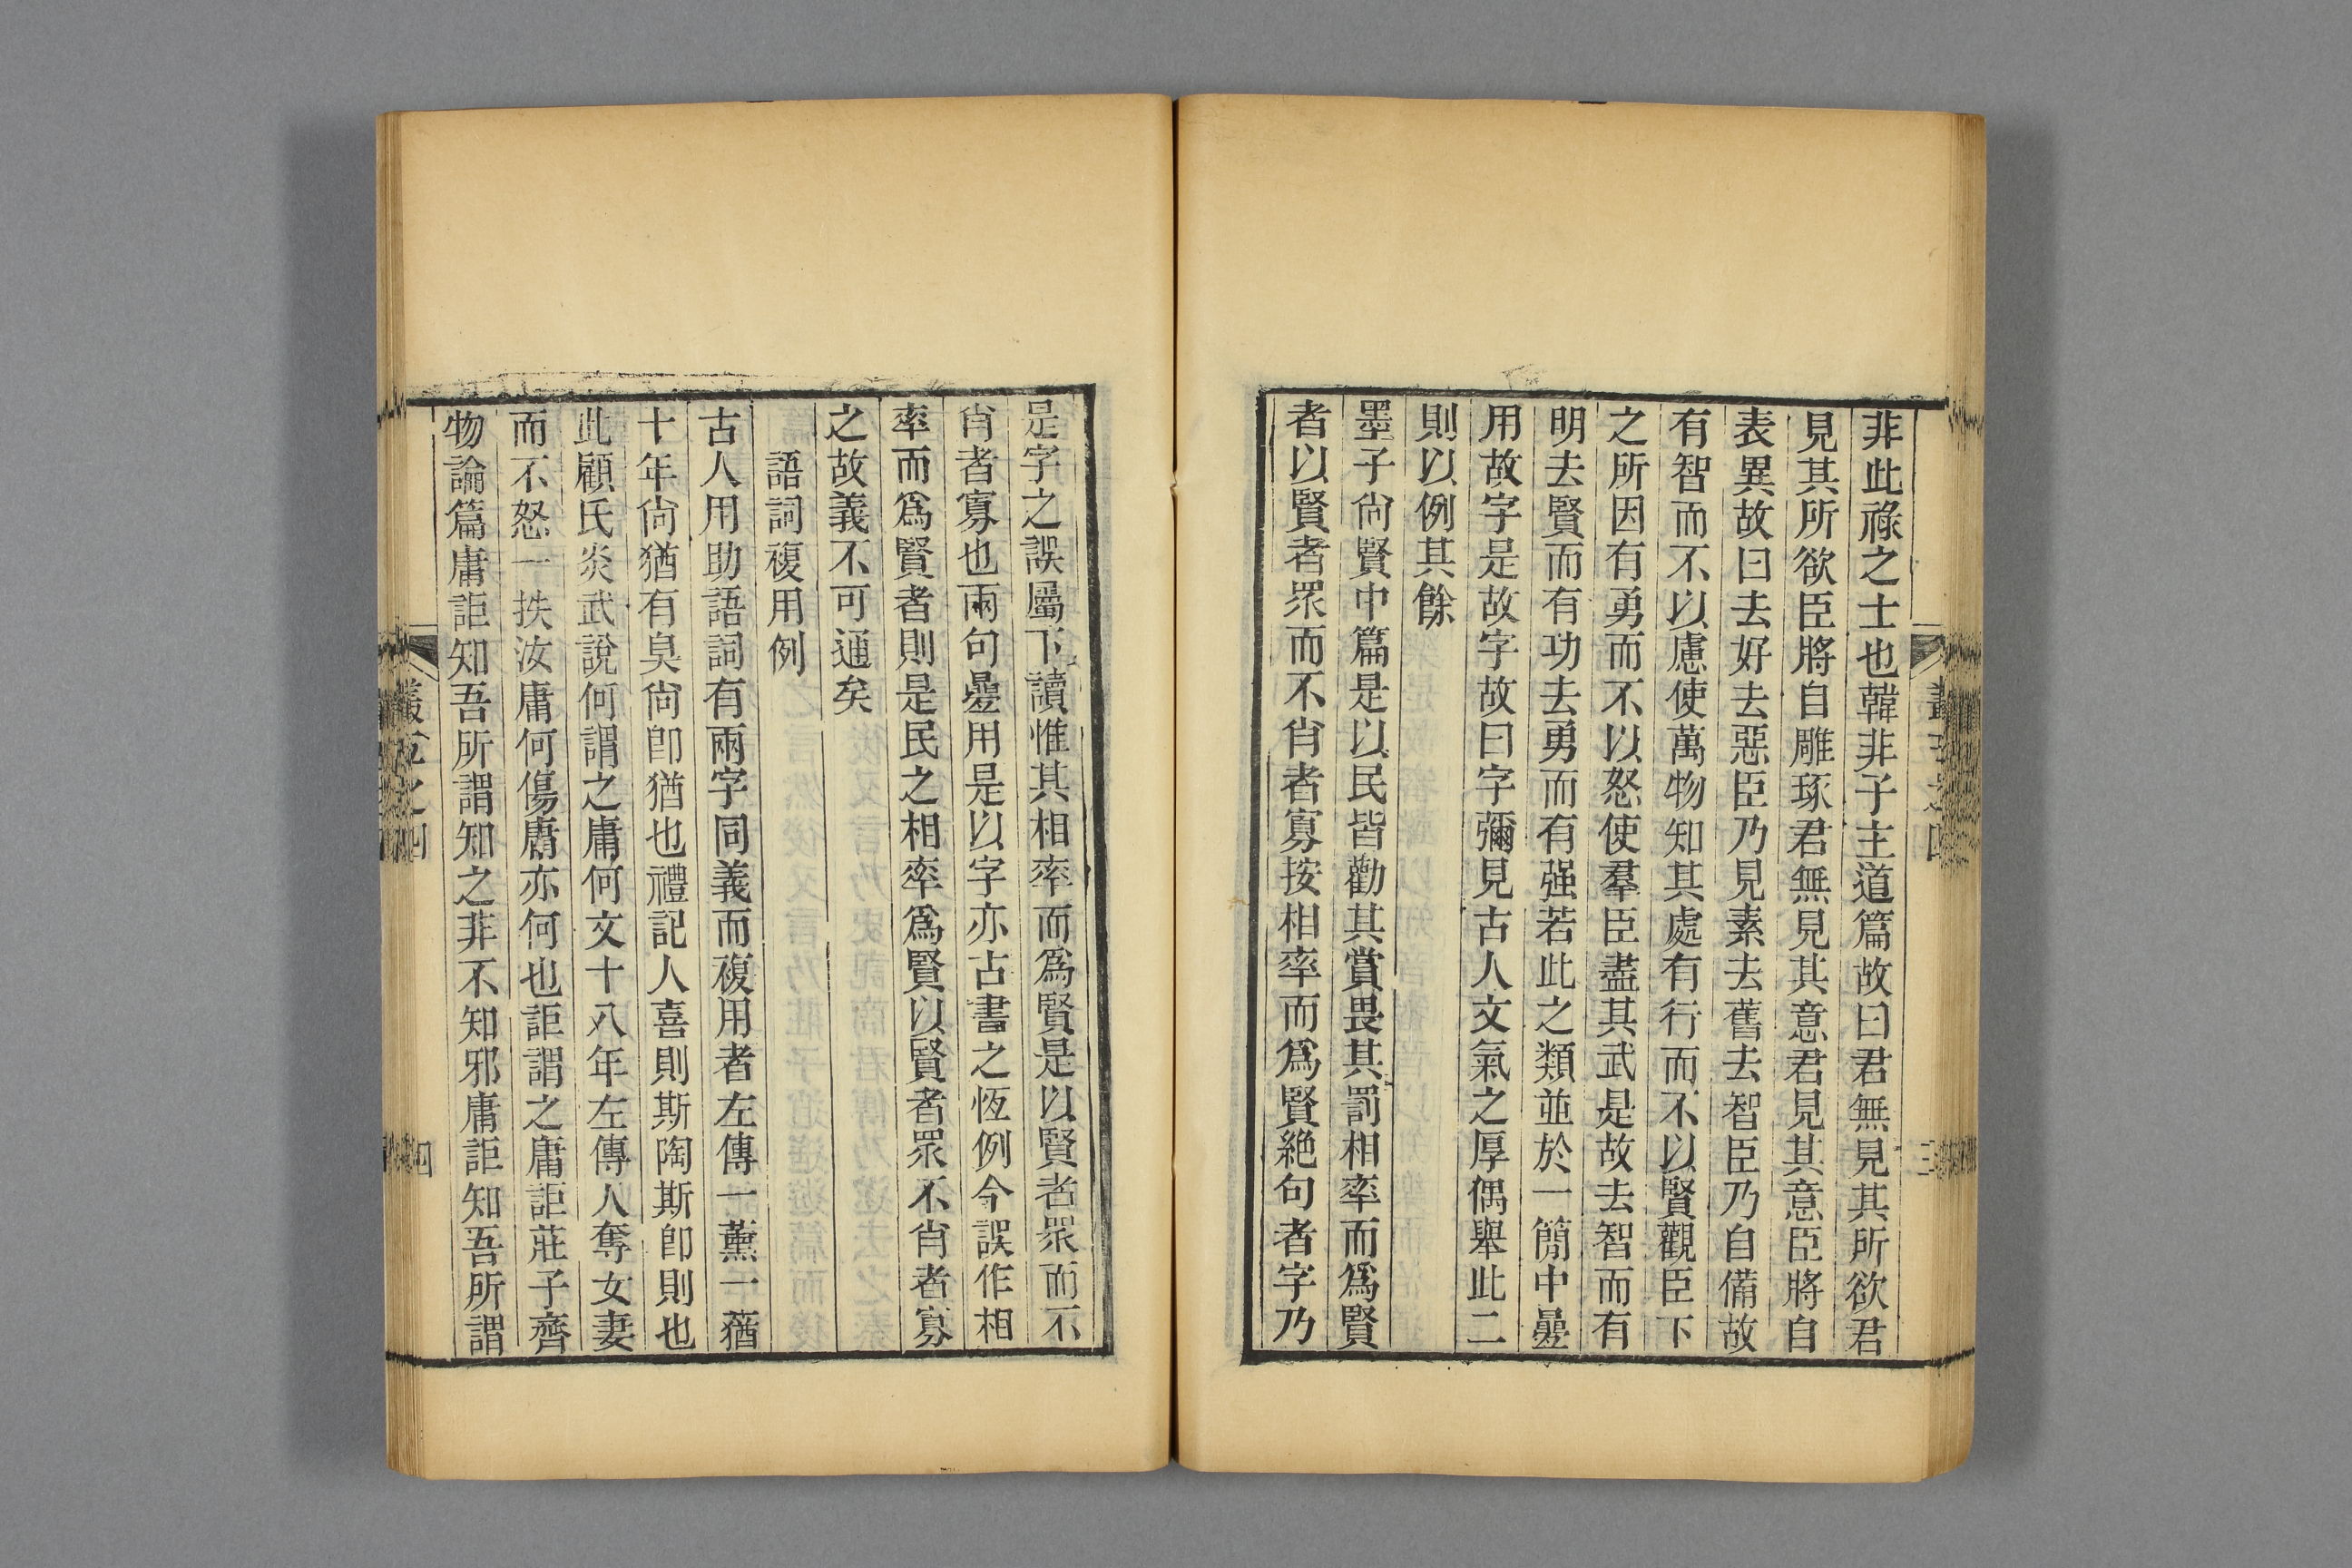 非此祿之士也韓非子主道篇故曰君無見其所欲君
見其所欲臣將自雕琢君無見其意君見其意臣將自
表異故曰去好去惡臣乃見素去舊去智臣乃自備故
有智而不以慮使萬物知其處有行而不以賢觀臣下
之所因有勇而不以怒使羣臣盡其武是故去智而有
明去賢而有功去勇而有强若此之類並於一簡中曡
用故字是故字故曰字彌見古人文氣之厚偶舉此二
則以例其餘
墨子尙賢中篇是以民皆勸其賞畏其罰相率而爲賢
者以賢者眾而不肖者寡按相率而爲賢絶句者字乃
是字之誤屬下讀惟其相率而爲賢是以賢者眾而不
肖者寡也兩句曡用是以字亦古書之恆例今誤作相
率而爲賢者則是民之相率爲賢以賢者眾不肖者寡
之故義不可通矣
語詞複用例
古人用助語詞有兩字同義而複用者左傳一薰一蕕
十年尙猶有臭尙卽猶也禮記人喜則斯陶斯卽則也
此顧氏炎武說何謂之庸何文十八年左傳人奪女妻
而不怒一抶汝庸何傷庸亦何也詎謂之庸詎莊子齊
物論篇庸詎知吾所謂知之非不知邪庸詎知吾所謂
之四
四